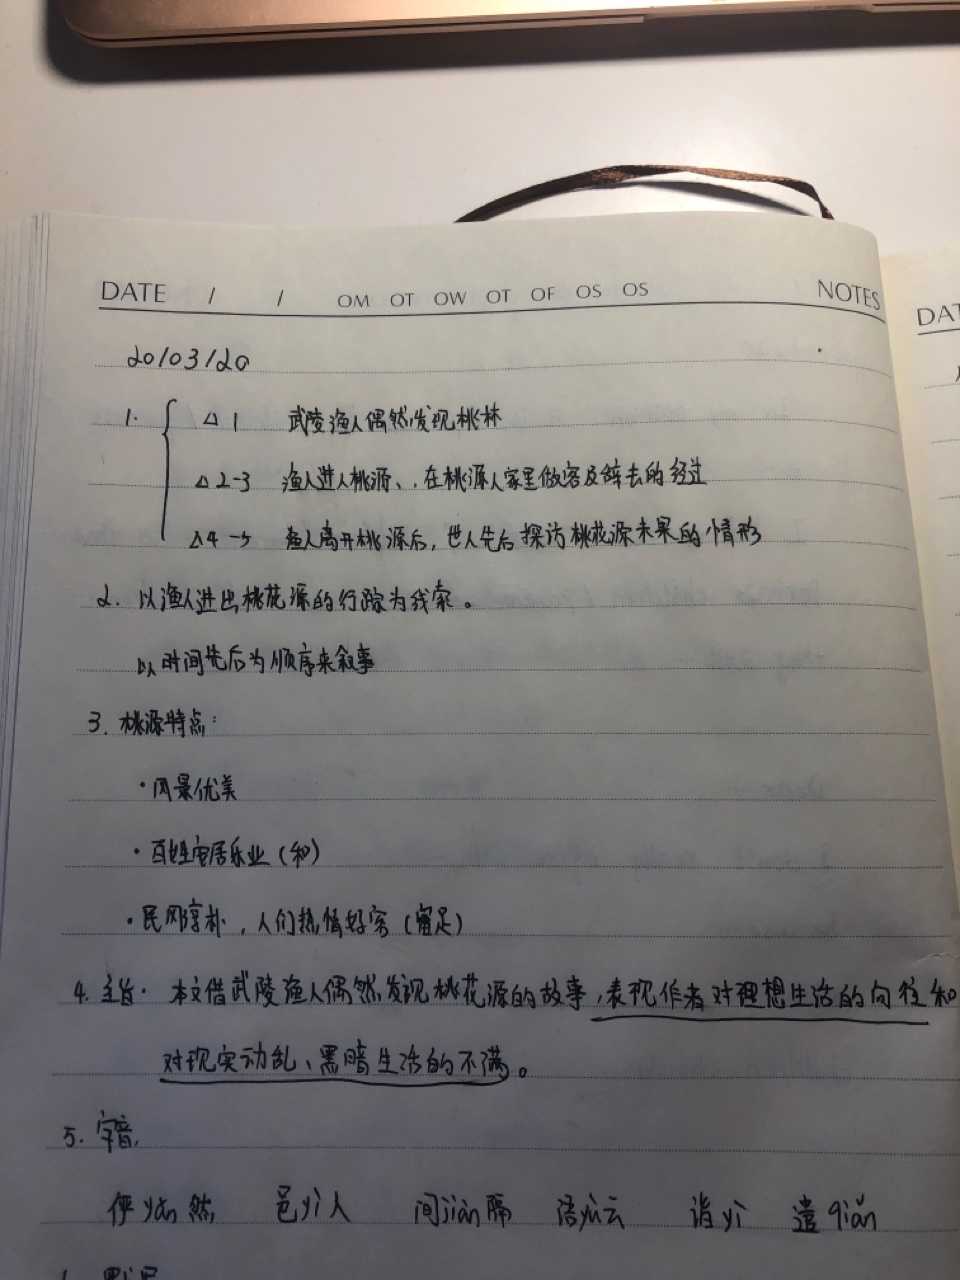 DATE / / OM OT OW OT OF OS OS NOTES
20/03/20
1. △1 武陵渔人偶然发现桃林
△2-3 渔人进入桃源、在桃源人家里做客及辞去的经过
△4-5 渔人离开桃源后，世人先后探访桃花源未果的情形
2. 以渔人进出桃花源的行踪为线索。
以时间先后为顺序来叙事
3. 桃源特点：
·风景优美
·百姓安居乐业（和）
·民风淳朴，人们热情好客（富足）
4. 主旨. 本文借武陵渔人偶然发现桃花源的故事，表现作者对理想生活的向往和
对现实动乱、黑暗生活的不满。
5. 字音.
俨yǎn然 邑yì人 间jiàn隔 语yù云 诣yì 遣qiǎn
DAT